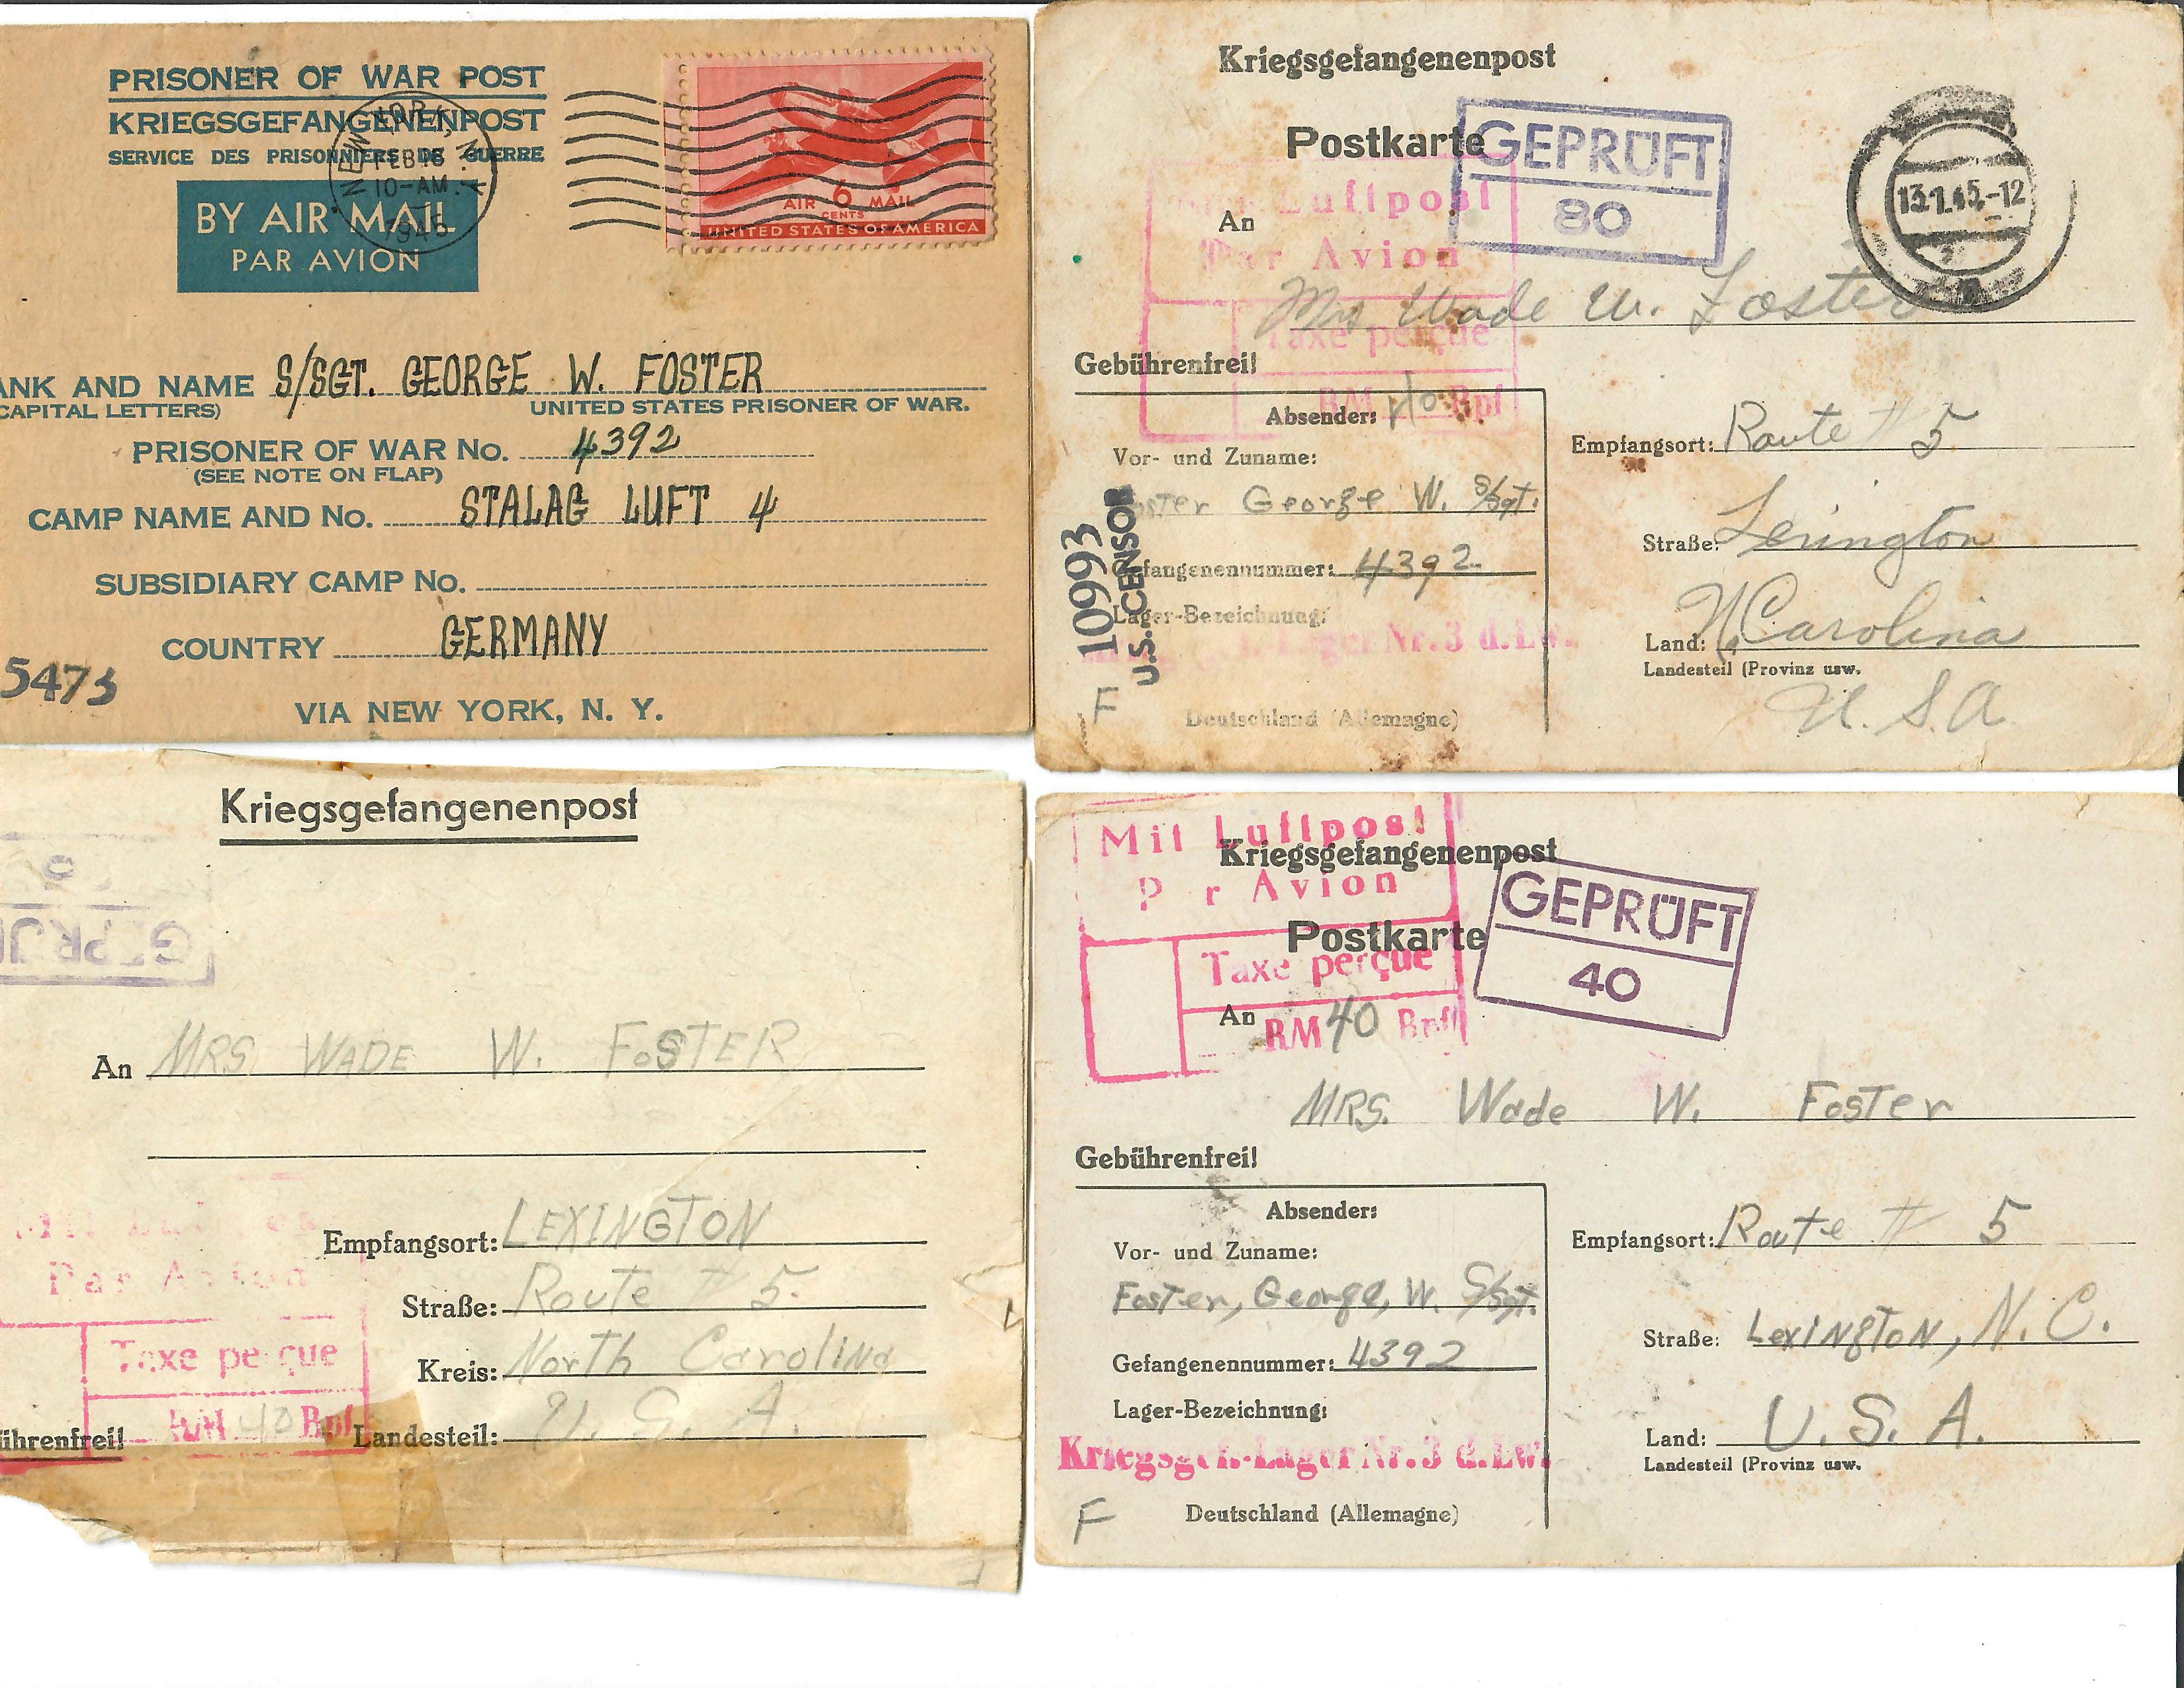 PRISONER OF WAR POST
KRIEGSGEFANGENENPOST
SERVICE DES PRISONNIERS DE GUERRE
BY AIR MAIL
PAR AVION
NEW YORK, N.Y.
FEB 16
10-AM
1945
AIR 6 MAIL
CENTS
UNITED STATES OF AMERICA
ANK AND NAME S/SGT. GEORGE W. FOSTER
CAPITAL LETTERS) UNITED STATES PRISONER OF WAR.
PRISONER OF WAR No. 4392
(SEE NOTE ON FLAP)
CAMP NAME AND No. STALAG LUFT 4
SUBSIDIARY CAMP No.
COUNTRY GERMANY
5473
VIA NEW YORK, N. Y.
Kriegsgefangenenpost
Postkarte
GEPRÜFT
80
Luftpost
Par Avion
Taxe perçue
RM 40 Rpf
13.1.45.-12
An
Mrs Wade W. Foster
Gebührenfrei!
Absender:
Vor- und Zuname:
oster George W. S/Sgt.
fangenennummer: 4392
Lager-Bezeichnung:
Lager Nr. 3 d. Lw.
10993
U.S. CENSOR
F
Deutschland (Allemagne)
Empfangsort: Route # 5
Straße: Lexington
Land: N. Carolina
Landesteil (Provinz usw.
U. S. A
Kriegsgefangenenpost
GEPRÜ
An MRS. WADE W. FOSTER
Empfangsort: LEXINGTON
Straße: Route # 5.
Kreis: North Carolina
Landesteil: U. S. A.
Par Avion
Taxe perçue
RM 40 Rpf
ührenfrei!
Mit Luftpost
Kriegsgefangenenpost
P r Avion
Postkarte
Taxe perçue
An
RM 40 Rpf
GEPRÜFT
40
MRS. Wade W. Foster
Gebührenfrei!
Absender:
Vor- und Zuname:
Foster, George, W. S/Sgt.
Gefangenennummer: 4392
Lager-Bezeichnung:
Kriegsgef.-Lager Nr. 3 d. Lw.
F
Deutschland (Allemagne)
Empfangsort: Route # 5
Straße: Lexington, N. C.
Land: U. S. A.
Landesteil (Provinz usw.